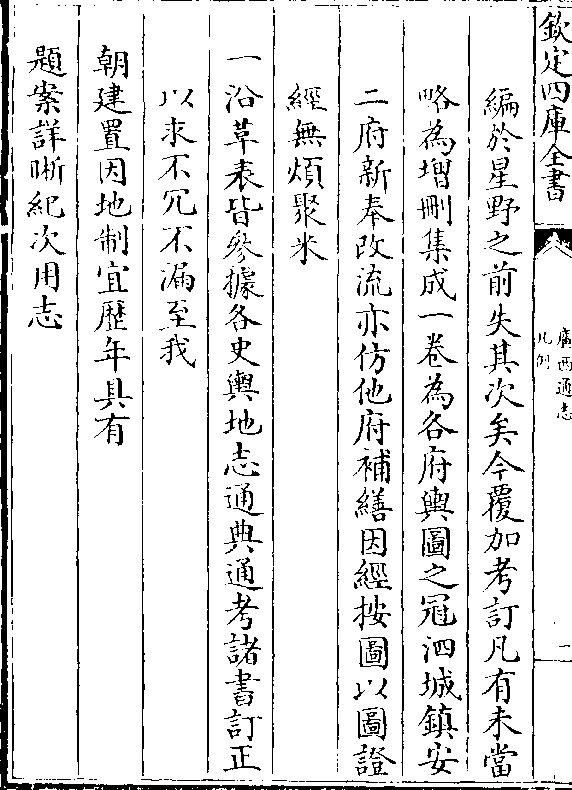 欽定四庫全書
廣西通志
凡例
二
編於星野之前失其次矣今覆加考訂凡有未當
略為增刪集成一卷為各府輿圖之冠泗城鎮安
二府新奉改流亦仿他府補繕因經按圖以圖證
經無煩聚米
一沿革表皆參據各史輿地志通典通考諸書訂正
以求不冗不漏至我
朝建置因地制宜歷年具有
題案詳晰紀次用志